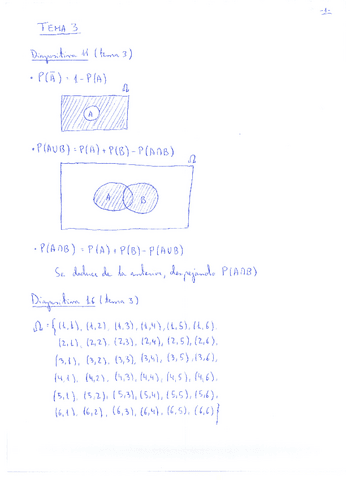 -1-
TEMA 3
Diapositiva 11 (tema 3)
• P(Ā) = 1 - P(A)
Ω
A
• P(A∪B) = P(A) + P(B) - P(A∩B)
Ω
A B
• P(A∩B) = P(A) + P(B) - P(A∪B)
Se deduce de la anterior, despejando P(A∩B)
Diapositiva 16 (tema 3)
Ω = {(1,1), (1,2), (1,3), (1,4), (1,5), (1,6),
(2,1), (2,2), (2,3), (2,4), (2,5), (2,6),
(3,1), (3,2), (3,3), (3,4), (3,5), (3,6),
(4,1), (4,2), (4,3), (4,4), (4,5), (4,6),
(5,1), (5,2), (5,3), (5,4), (5,5), (5,6),
(6,1), (6,2), (6,3), (6,4), (6,5), (6,6)}